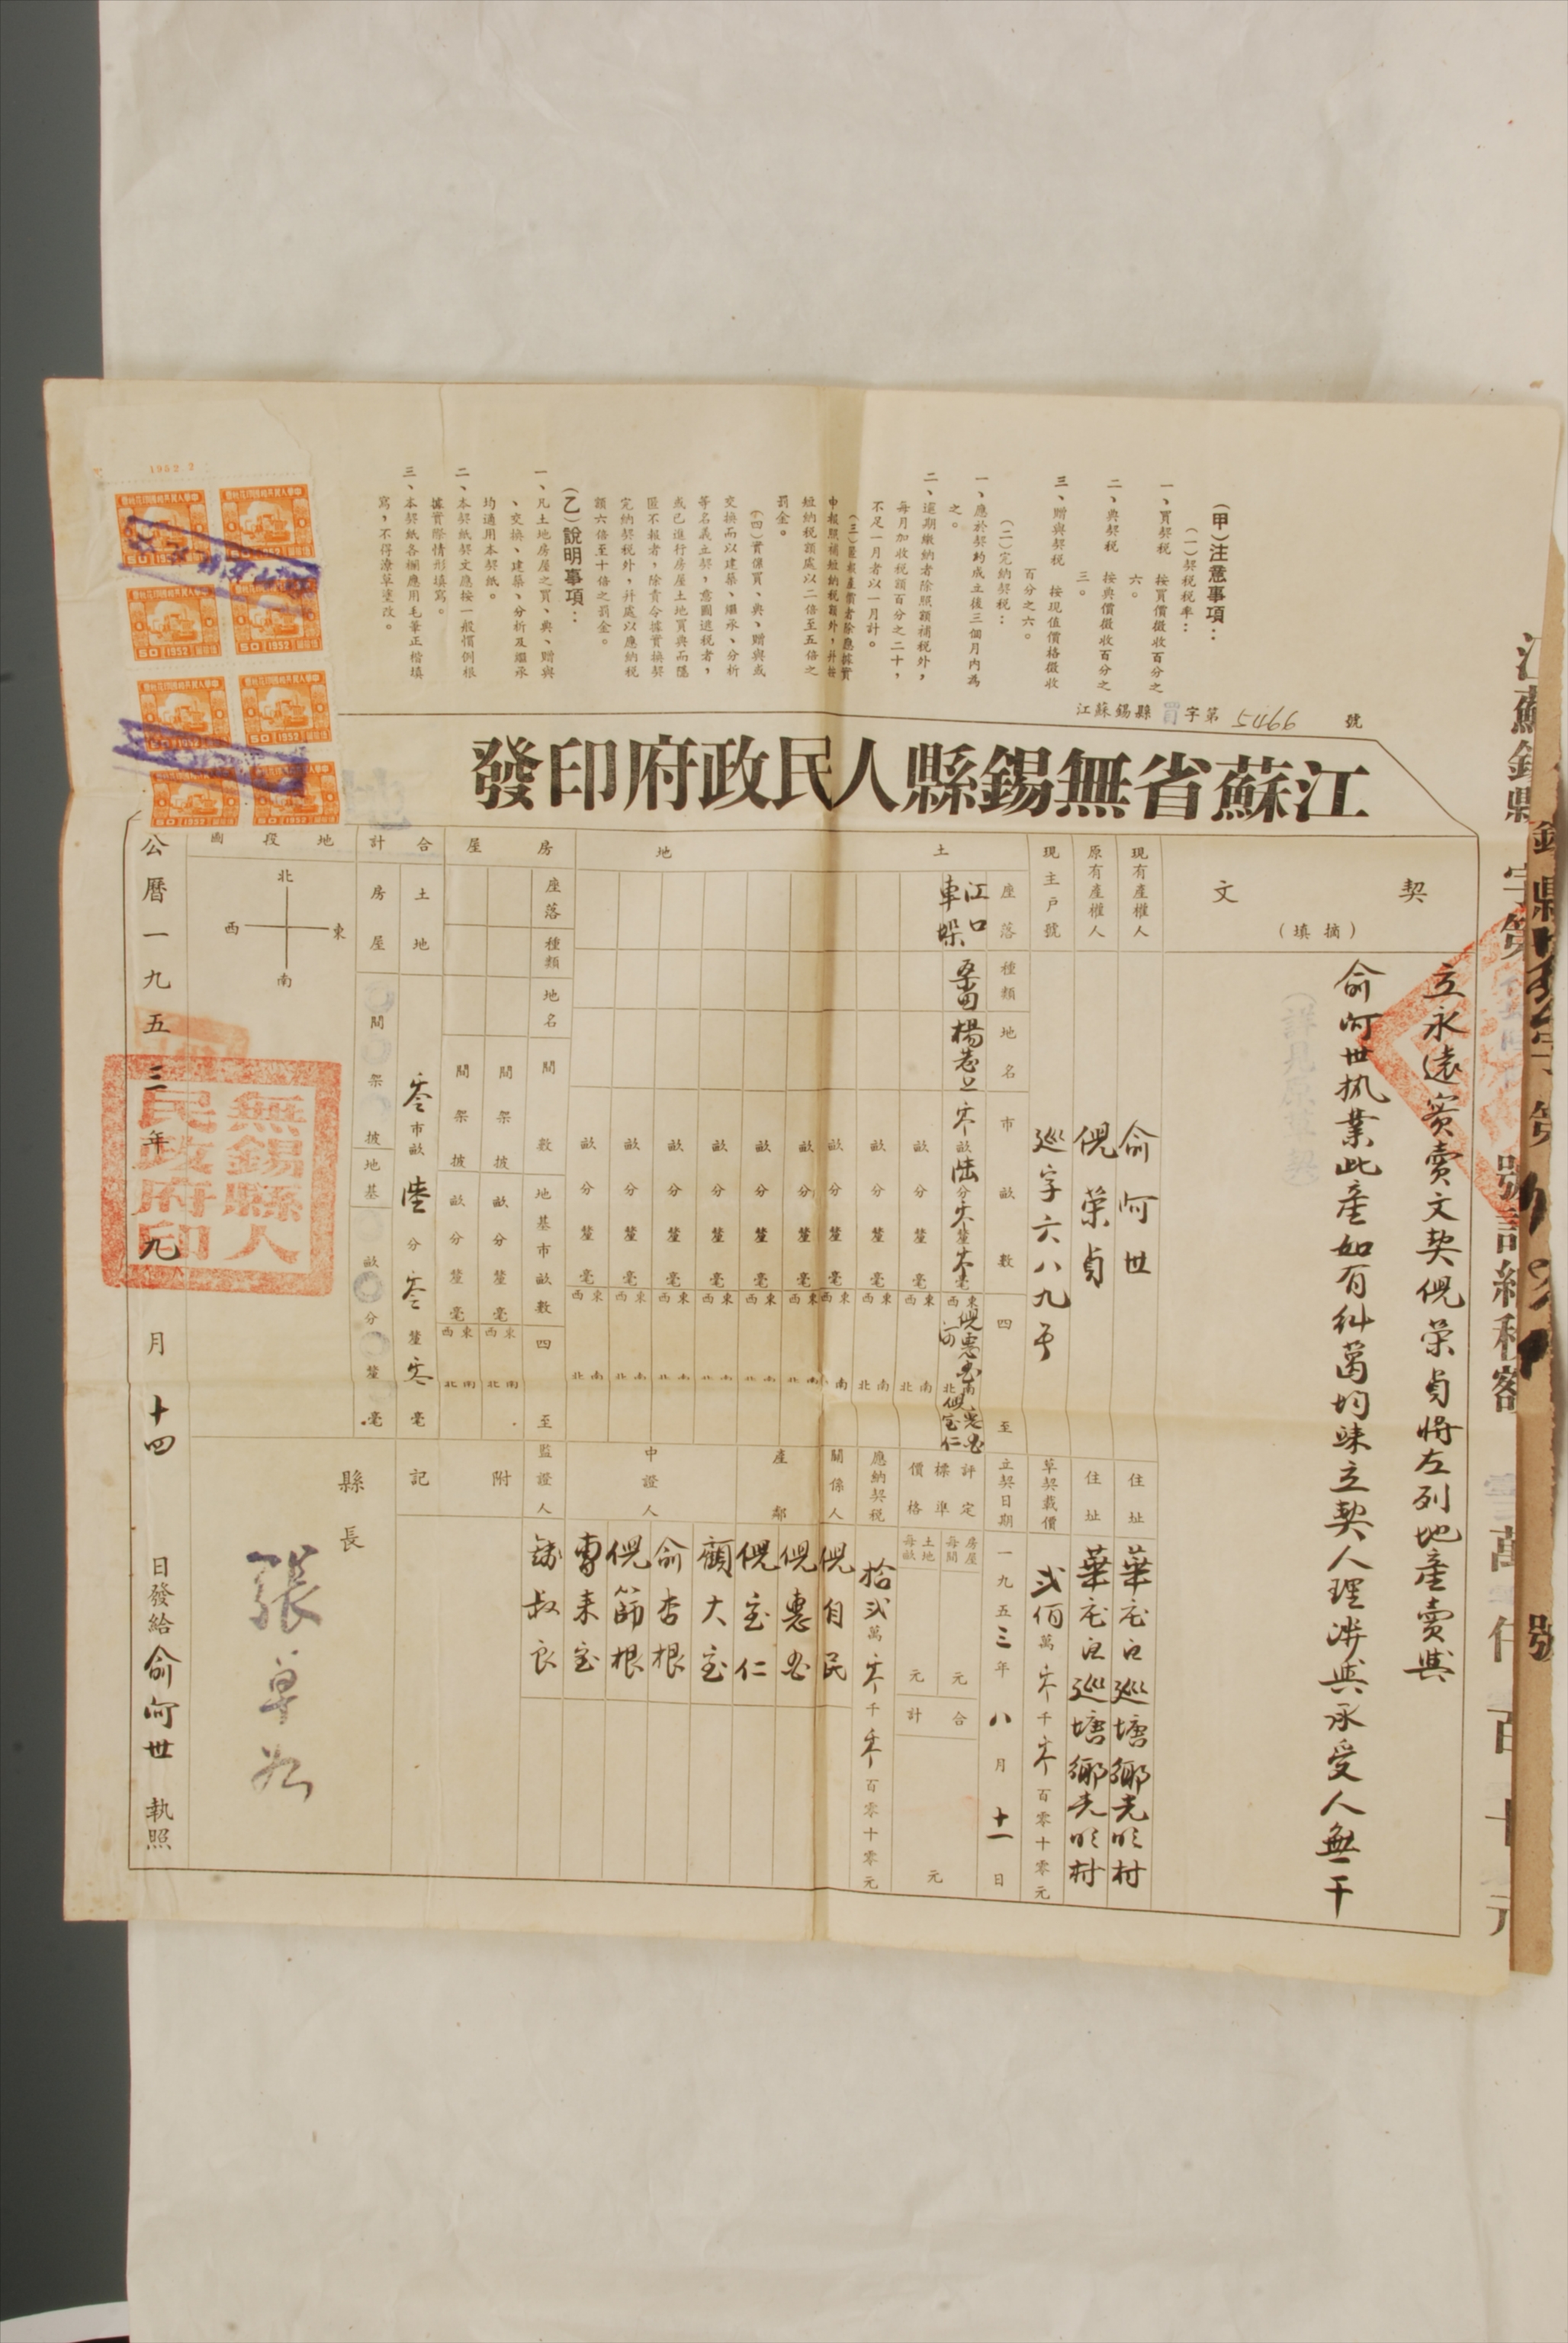 (甲)注意事項：
(一)契税税率：
一、買契税　按買價徵收百分之
六。
二、典契税　按典價徵收百分之
三。
三、贈與契税　按現值價格徵收
百分之六。
(二)完納契税：
一、應於契約成立後三個月内為
之。
二、逾期繳納者除照額補税外，
每月加收税額百分之二十，
不足一月者以一月計。
(三)匿報產價者除應據實
申報照補短納税額外，并按
短納税額處以二倍至五倍之
罰金。
(四)實係買、典、贈與或
交換而以建築、繼承、分析
等名義立契，意圖逃税者，
或已進行房屋土地買典而隱
匿不報者，除責令據實換契
完納契税外，幷處以應納税
額六倍至十倍之罰金。
(乙)說明事項：
一、凡土地房屋之買、典、贈與
、交換、建築、分析及繼承
均適用本契紙。
二、本契紙契文應按一般慣例根
據實際情形填寫。
三、本契紙各欄應用毛筆正楷填
寫，不得潦草塗改。
江蘇錫縣買字第5466號
江蘇省無錫縣人民政府印發
契文
(摘填)
立永遠賣文契倪荣貞將左列地產賣與
俞阿世执業此產如有糾葛均昧立契人理涉與承受人無干
(詳見原草契)
現有產權人　俞阿世
住址　華庄区巡塘鄉光明村
原有產權人　倪荣貞
住址　華庄区巡塘鄉光明村
現主戶號　巡字六八九号
草契載價　弍佰萬零千零百零十零元
土地
座落　江口車垛
種類　桑田
地名　楊巷上
市畝數　零畝陸分零釐零毫
四至　東倪惠宝　西河　南惠宝　北倪宝仁
立契日期　一九五三年八月十一日
評定標準價格
房屋每間　元
土地每畝　元
合計　元
應納契税　拾弍萬零千零百零十零元
關係人　倪自民
產鄰　倪惠宝
倪宝仁
顧大宝
中證人　俞杏根
倪節根
曹来宝
監證人　錢叔良
房屋
座落
種類
地名
間數
地基市畝數
四至
間架披　畝分釐毫　東西南北
間架披　畝分釐毫　東西南北
合計
土地　零市畝陸分零釐零毫
房屋　間架披　地基　畝分釐毫
附記
地段圖
北
西　東
南
縣長
公曆一九五三年九月十四日發給俞阿世執照
無錫縣人民政府印
1952.2
中華人民共和國印花稅票
50 1952